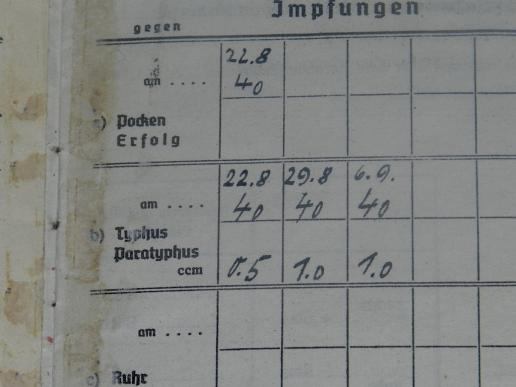 Impfungen
gegen
22.8
am .... 40
a) Pocken
Erfolg
22.8 29.8 6.9.
am .... 40 40 40
b) Typhus
Paratyphus
ccm 0.5 1.0 1.0
am ....
c) Ruhr